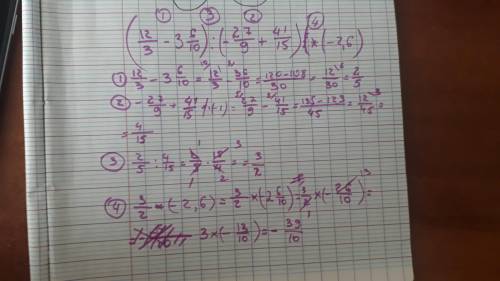 ① ③ ② ④
(12/3 - 3 6/10) : (-27/9 + 41/15) × (-2,6)
① 12/3 - 3 6/10 = 12/3 - 36/10 = 120-108/30 = 12/30 = 2/5
② -27/9 + 41/15 /·(-1) = 27/9 - 41/15 = 135-123/45 = 12/45 =
= 4/15
③ 2/5 : 4/15 = 2/5 · 15/4 = = 3/2
④ 3/2 × (-2,6) = 3/2 × (-2 6/10) = 3/2 × (-26/10) =
3 × (-13/10) = - 39/10